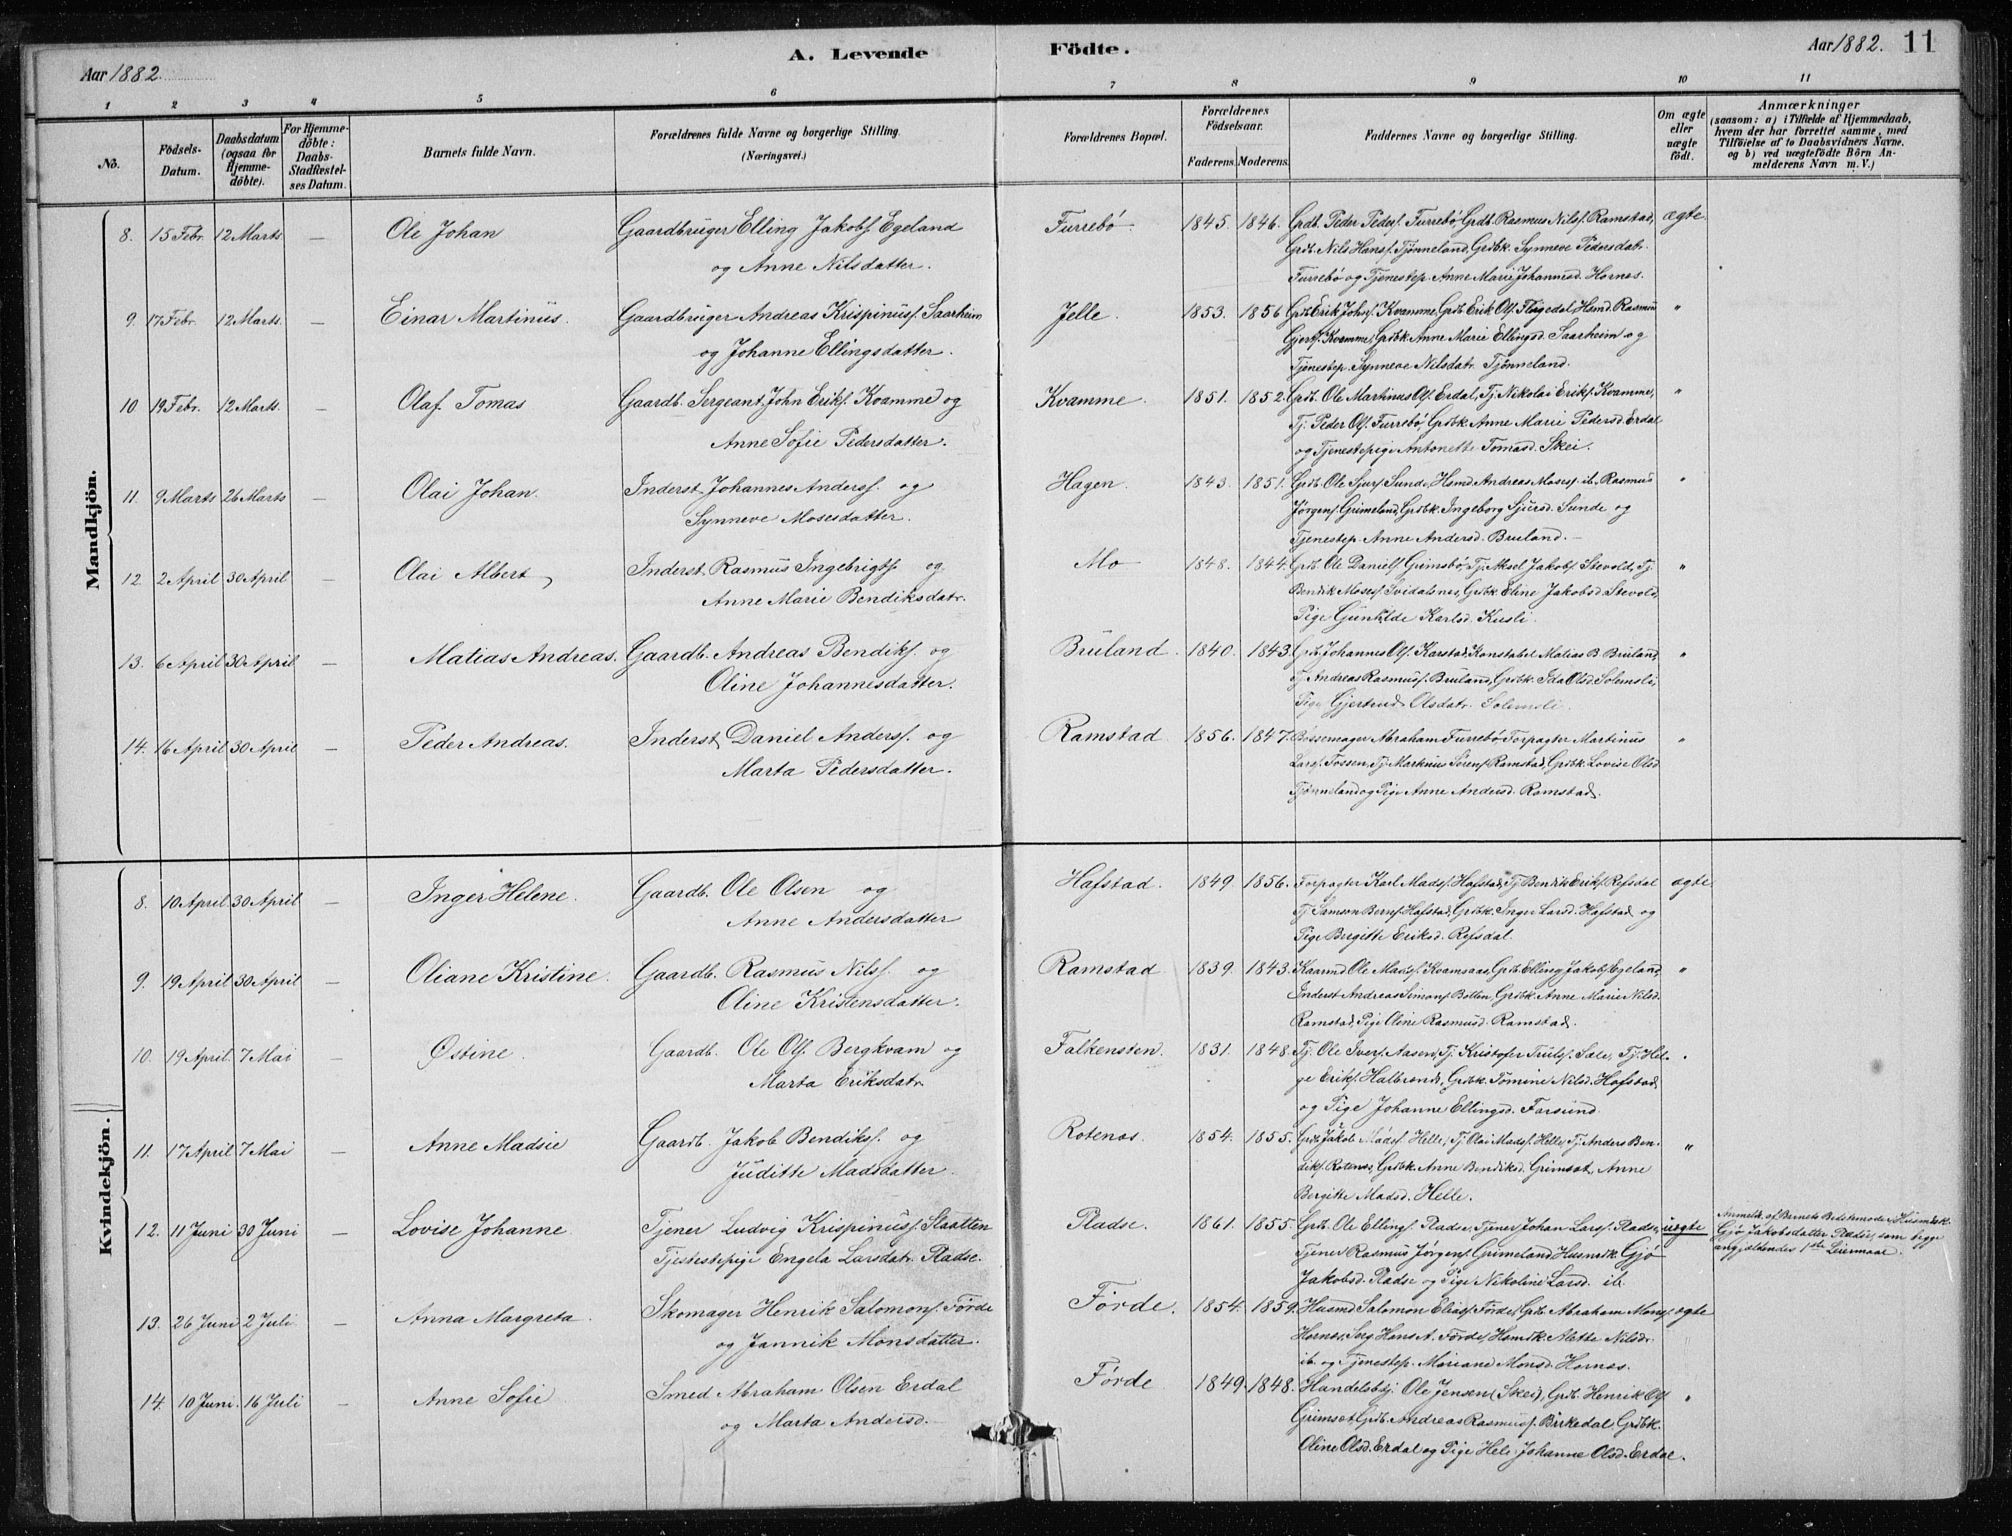 Aar 1882.
A. Levende Födte.
Aar 1882. 11
1 2 3 4 5 6 7 8 9 10 11
No.
Födsels-Datum.
Daabsdatum (ogsaa for Hjemme-döbte).
For Hjemme-döbte: Daabs-Stadfæstel-ses Datum.
Barnets fulde Navn.
Forældrenes fulde Navne og borgerlige Stilling.
(Næringsvei.)
Forældrenes Bopæl.
Forældrenes Födselsaar.
Faderens. Moderens.
Faddernes Navne og borgerlige Stilling.
Om ægte eller uægte födt.
Anmærkninger
(saasom: a) i Tilfælde af Hjemmedaab,
hvem der har forrettet samme, med
Tilföielse af to Daabsvidners Navne.
og b) ved uægtefödte Börn An-
melderens Navn m. V.)
Mandkjön.
8. 15 Febr. 12 Marts. — Ole Johan Gaardbruger Elling Jakobs. Egeland Furrebø 1845. 1846. Grdb. Peder Peders. Furrebø, Grdb. Rasmus Nils. Ramstad, ægte.
og Anne Nilsdatter. Grdb. Nils Hans. Tjønneland, Grdbk. Synneve Pedersdatr.
Furrebø og Tjenestep. Anne Marie Johannesd. Hornes.
9. 17 Febr. 12 Marts. — Einar Martinus. Gaardbruger Andreas Krispinus. Saarheim Jelle. 1853. 1856 Grdb. Erik Johs. Kvamme, Grdb. Erik Ols. Flugedal Hsmd. Rasmus "
og Johanne Ellingsdatter. Gjerts. Kvamme, Grdbk. Anne Marie Ellingsd. Saarheim og
Tjenestep. Synneve Nilsdatr. Tjønneland.
10 19 Febr. 12 Marts. — Olaf Tomas Gaardb. Sergeant John Eriks. Kvamme og Kvamme. 1851. 1852. Grdb. Ole Martinus Ols. Erdal, Tj. Nikolai Eriks. Kvamme, "
Anne Sofie Pedersdatter. Tj. Peder Ols. Furrebø, Grdbk. Anne Marie Pedersd. Erdal
og Tjenestepige Antonette Tomasd. Skei.
11. 9 Marts 26 Marts — Olai Johan. Inderst Johannes Anders. og Hagen. 1843. 1851. Grdb. Ole Sjurs. Sunde, Hsmd. Andreas Moses. ib. Rasmus "
Synneve Mosesdatter. Jørgens. Grimeland, Grdbk. Ingeborg Sjursd. Sunde og
Tjenestep. Anne Andersd. Bruland.
12. 2 April 30 April — Olai Albert Inderst Rasmus Ingebrigts. og Mo 1848. 1844. Grdb. Ole Daniels. Grimsbø, Tj. Aksel Jakobs. Stevold, Tj. "
Anne Marie Bendiksdatr. Bendik Moses. Svidalsnes, Grdbk. Eline Jakobsd. Stevold,
Pige Gunhilde Karlsd. Kusli.
13. 6 April 30 April — Matias Andreas. Gaardb. Andreas Bendiks. og Bruland. 1840. 1843. Grdb. Johannes Ols. Karstad, Konstabel Matias B. Bruland, "
Oline Johannesdatter. Tj. Andreas Rasmus. Bruland, Grdbk. Ida Olsd. Solemsli,
Pige Gjertrud Olsdatr. Solemsli.
14. 16 April 30 April — Peder Andreas. Inderst Daniel Anders. og Ramstad 1856. 1847. Bøssemager Abraham Furrebø, Forpagter Martinus "
Marta Pedersdatter. Lars. Fossen, Tj. Markus Sørens. Ramstad, Grdbk. Lovise Olsd.
Tjønneland og Pige Anne Andersd. Ramstad.
Kvindekjön.
8. 10 April 30 April — Inger Helene. Gaardb. Ole Olsen og Hafstad. 1849. 1856. Forpagter Karl Mads. Hafstad, Tj. Bendik Eriks. Refsdal ægte.
Anne Andersdatter Tj. Samson Berns. Hafstad, Grdbk. Inger Larsd. Hafstad og
Pige Bergitte Eriksd. Refsdal.
9. 19 April 30 April — Oliane Kristine. Gaardb. Rasmus Nils. og Ramstad 1839. 1843. Kaarmd. Ole Mads. Kvamsaas, Grdb. Elling Jakobs. Egeland, "
Oline Kristensdatter. Inderst Andreas Simons. Botten Grdbk. Anne Marie Nilsd.
Ramstad, Pige Oline Rasmusd. Ramstad.
10. 19 April. 7 Mai — Østine. Gaardb. Ole Ols. Bergkvam og Falkensten. 1831. 1848. Tj. Ole Ivers. Aasen, Tj. Kristofer Truls. Sæle, Tj. Hel- "
Marta Eriksdatr. ge Eriks. Halbrend, Grdbk. Tomine Nilsd. Hafstad
og Pige Johanne Ellingsd. Farsund.
11. 17 April 7 Mai — Anne Madsie Gaardb. Jakob Bendiks. og Rotenes. 1854. 1855. Grdb. Jakob Mads. Helle, Tj. Olai Mads. Helle, Tj. Anders Ben- "
Juditte Madsdatter diks. Rotenes, Grdbk. Anne Bendiksd. Grimset, Anne
Bergitte Madsd. Helle.
12. 11 Juni 30 Juni — Lovise Johanne Tjener Ludvig Krispinus. Slaatten Pladse. 1861. 1855. Grdb. Ole Ellings. Pladse, Tjener Johan Lars. Pladse, uægte Anmeldt af Barnets Bedstemoder Husmdsk.
Tjestestepige Engela Larsdatr. Pladse. Tjener Rasmus Jørgens. Grimeland Husmdk. Gjø Gjø Jakobsdatter Pladse, som begge
Jakobsd. Pladse og Pige Nikoline Larsd. ib. angjældendes 1ste Leiermaal.
13. 26 Juni 2 Juli. — Anna Margreta. Skomager Henrik Salomons. Førde Førde. 1854. 1859. Husmd. Salomon Elias. Førde, Grdb. Abraham Mons. ægte
og Jannik Monsdatter. Hornes, Serg. Hans A. Førde, Hsmdk. Alette Nilsdr.
ib. og Tjenestep. Mariane Monsd. Hornes.
14. 10 Juni. 16 Juli — Anne Sofie Smed Abraham Olsen Erdal Førde 1849. 1848. Handelsbtj. Ole Jensen (Skei), Grdb. Henrik Ols. "
og Marta Andersd. Grimset, Grdb. Andreas Rasmus. Birkedal, Grdbk.
Oline Olsd. Erdal og Pige Hele Johanne Olsd. Erdal.